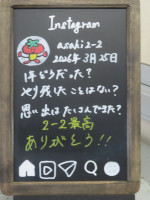 Instagram
asaki2-2
2026年3月25日
1年どうだった?
やり残したことはない?
思い出はたくさんできた?
2-2最高
ありがとう!!